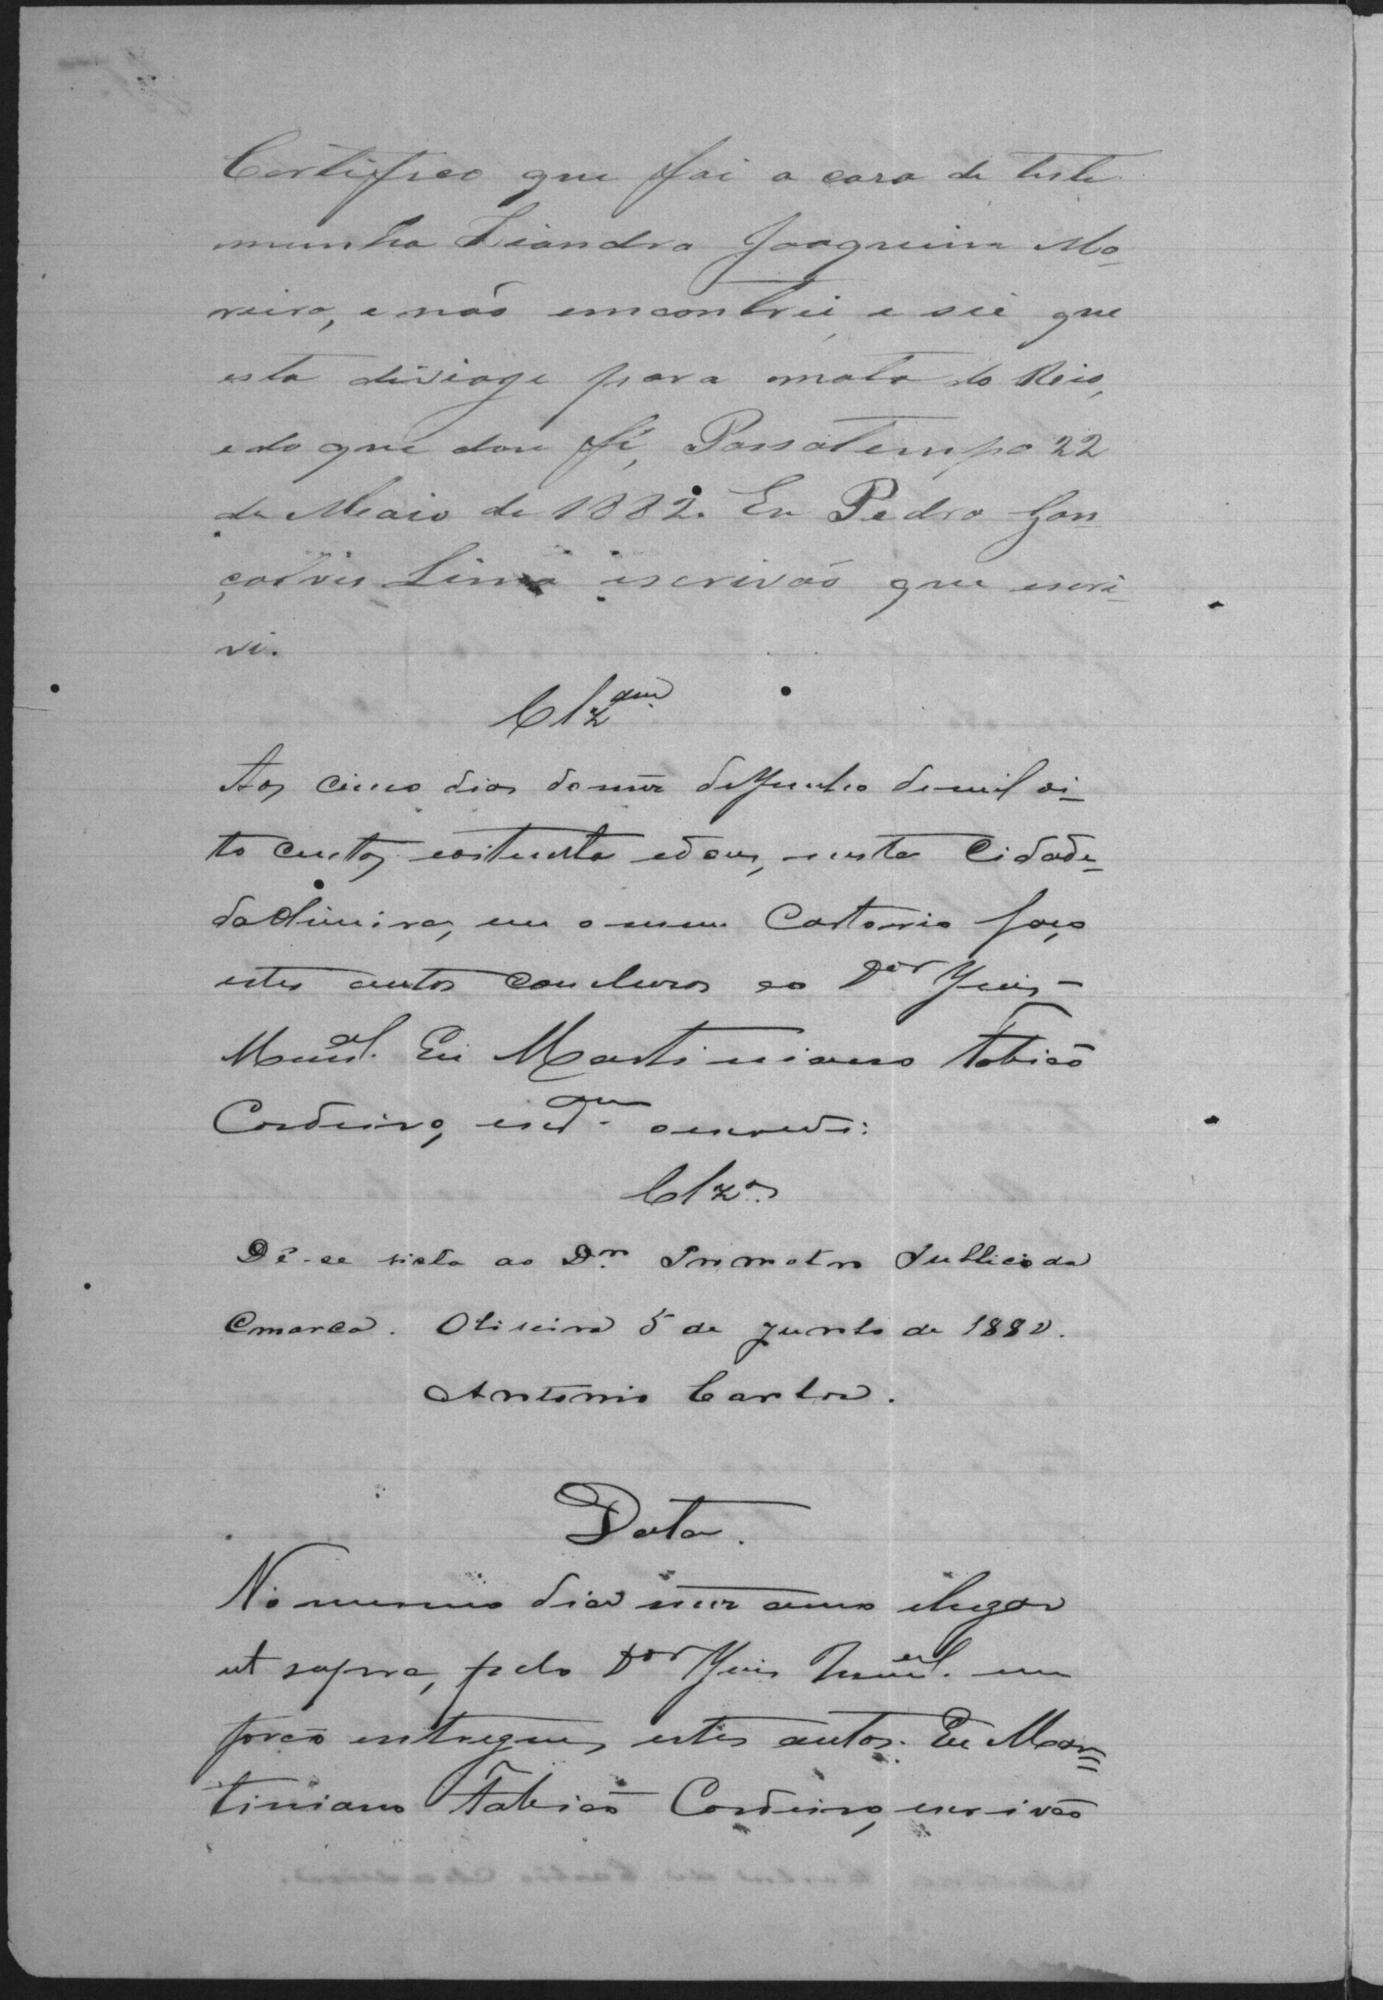 Certifico que fui a casa de teste
munha Liandra Joaquina Mo-
reira, e não emcontrei, e sei que
esta diviage para omata do Rio,
edo que dou fé, Passatempo 22
de Maio de 1882. Eu Pedro Gon
çalves Lima iscrivão que escri-
vi.
Clz am
Aos cinco dias domez deJunho demil oi-
to centos eoitenta edous, nesta Cidade
daOliveira, em o meu Cartorio faço
estes autos concluzos ao Dor Juis
Munal. Eu Martiniano Fabião
Cordeiro, escram oescrevi:
Clzos
Dê-se vista ao Dr. Promotor Publico da
Comarca. Oliveira 5 de Junho de 1882.
Antonio Carlos.
Data.
No mesmo dia mez anno elugar
ut supra, pelo Dor Juis Munal. me
forão entregues estes autos. Eu Mar=
tiniano Fabião Cordeiro, escrivão